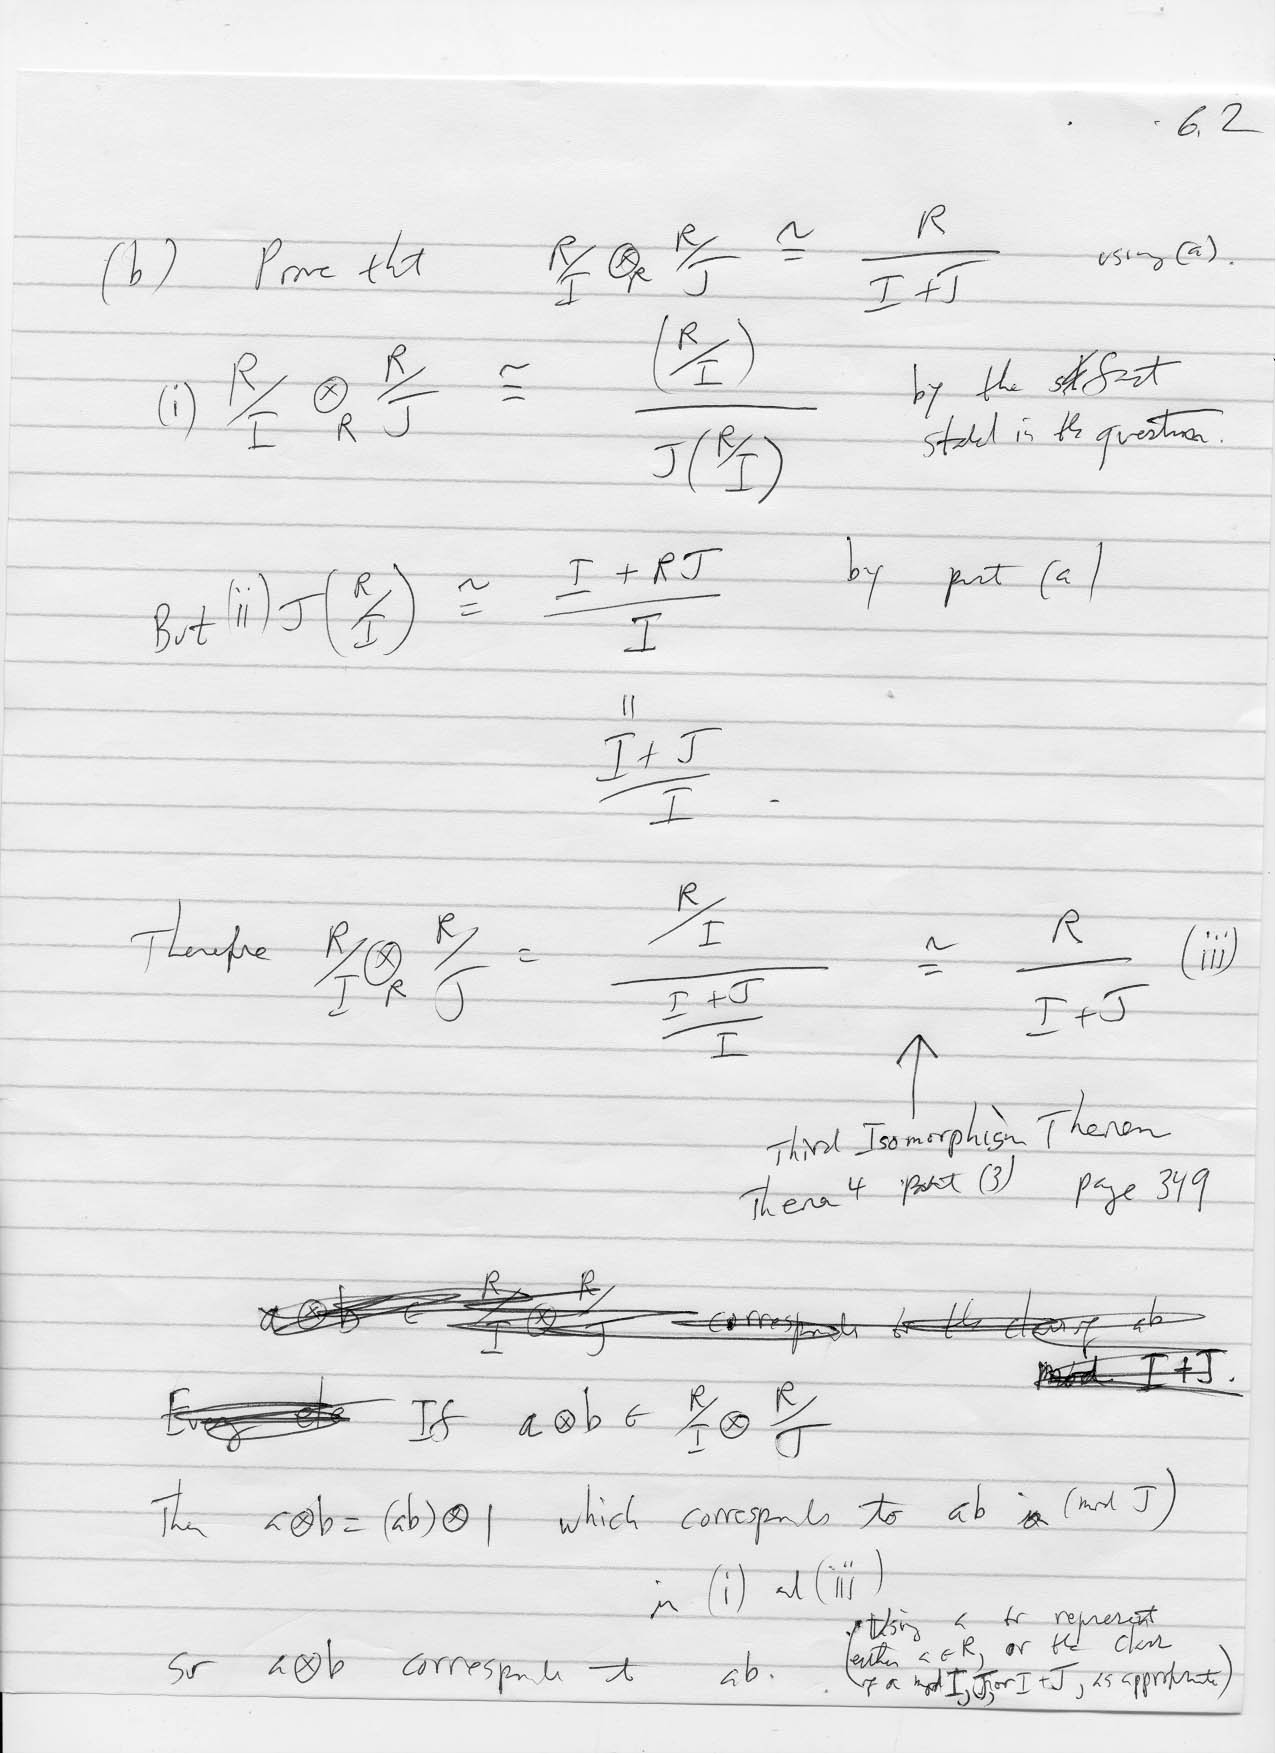 6.2
(b) Prove tht R/I ⊗_R R/J ≅ R/(I+J) using (a).
(i) R/I ⊗_R R/J ≅ (R/I) / J(R/I) by the fact
stated in the question.
But (ii) J(R/I) ≅ (I + RJ)/I by part (a)
=
(I + J)/I.
Therefore R/I ⊗_R R/J = (R/I) / ((I+J)/I) ≅ R/(I+J) (iii)
Third Isomorphism Theorem
Theorem 4 part (3) page 349
a⊗b ∈ R/I ⊗ R/J corresponds to the class of ab
mod I+J.
Every If a⊗b ∈ R/I ⊗ R/J
Then a⊗b = (ab)⊗1 which corresponds to ab (mod J)
in (i) and (iii)
(Using a to represent
either a∈R, or the class
of a mod I, J, or I+J, as appropriate)
so a⊗b corresponds to ab.